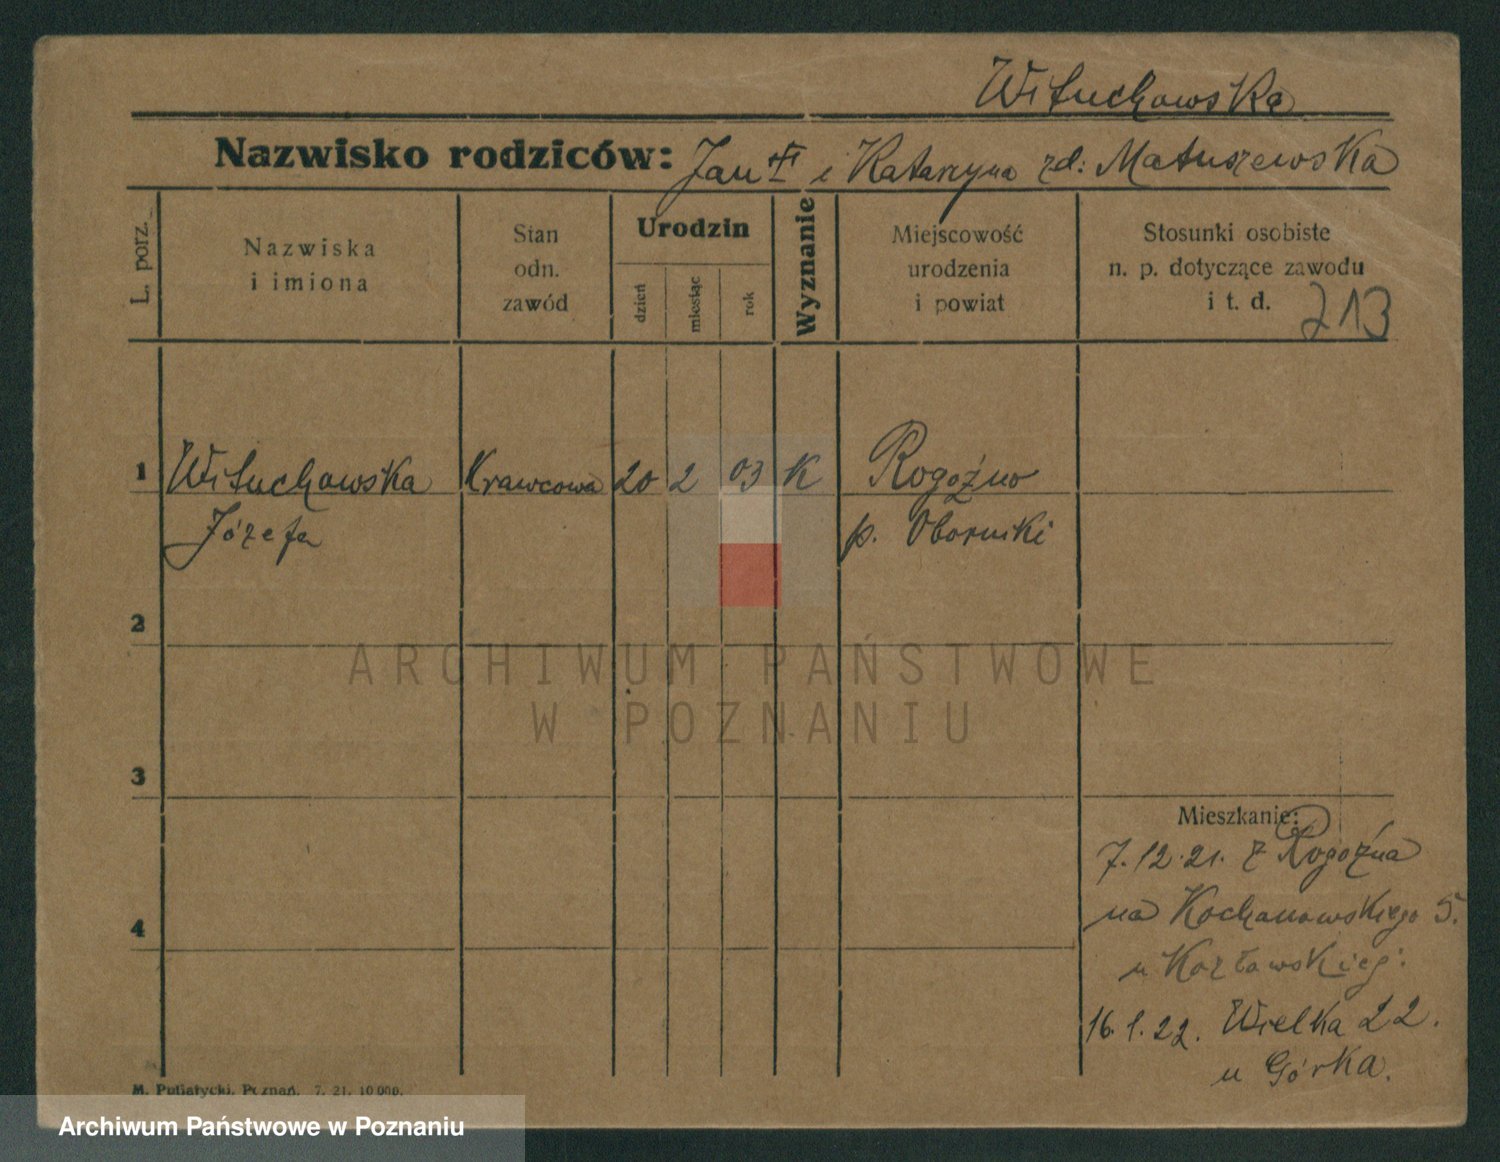 Wituchowska
Nazwisko rodziców: Jan i Katarzyna zd: Matuszewska
L. porz.
Nazwiska
i imiona
Stan
odn.
zawód
Urodzin
dzień
miesiąc
rok
Wyznanie
Miejscowość
urodzenia
i powiat
Stosunki osobiste
n. p. dotyczące zawodu
i t. d. 213
1 Wituchowska Krawcowa 20 2 03 K Rogoźno
Józefa p. Oborniki
2
ARCHIWUM PAŃSTWOWE
W POZNANIU
3
Mieszkanie:
7.12.21. z Rogoźna
na Kochanowskiego 5.
4
u Kozławskieg:
16.1.22. Wielka 22.
u Górka.
M. Putiatycki, Poznań. 7. 21. 10 000.
Archiwum Państwowe w Poznaniu